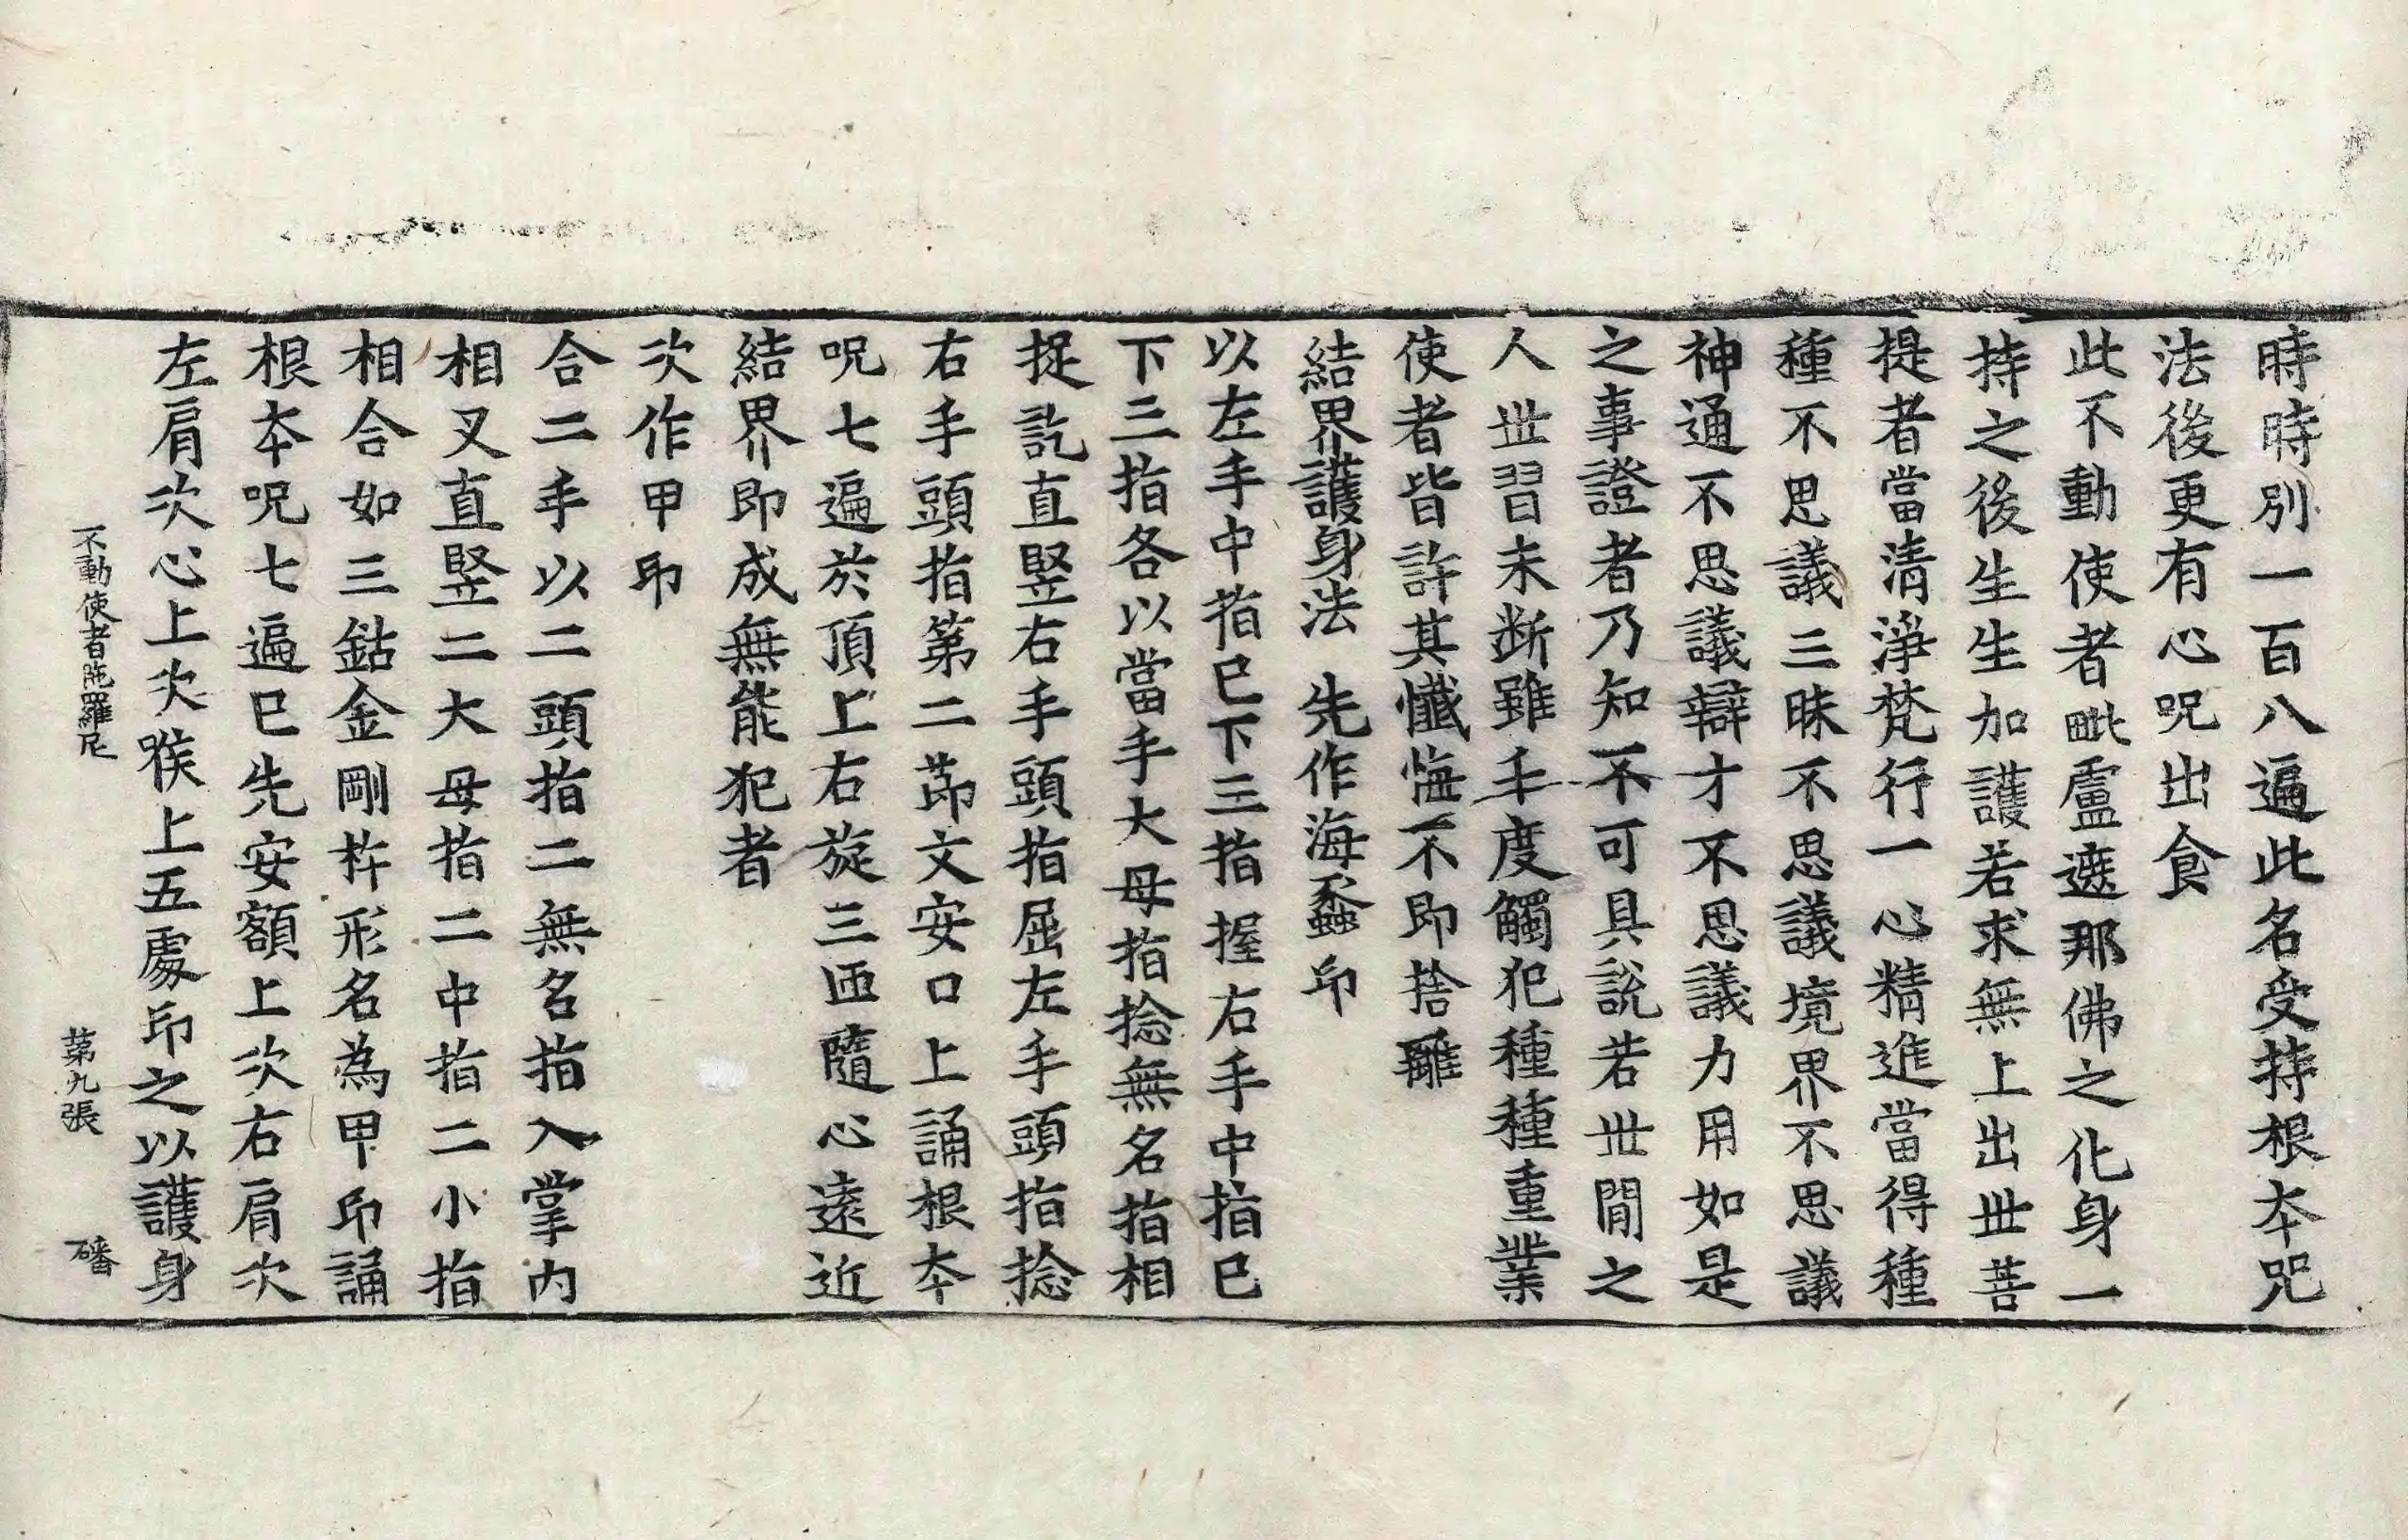 時時別一百八遍此名受持根本咒
法後更有心呪出食
此不動使者毗盧遮那佛之化身一
持之後生生加護若求無上出世菩
提者當清淨梵行一心精進當得種
種不思議三昧不思議境界不思議
神通不思議辯才不思議力用如是
之事證者乃知不可具說若世間之
人世習未斷雖年度觸犯種種重業
使者皆許其懺悔不即捨離
結界護身法　先作海螽印
以左手中指已下三指握右手中指已
下三指各以當手大母指捻無名指相
捉訖直竪右手頭指屈左手頭指捻
右手頭指第二節文安口上誦根本
呪七遍於頂上右旋三匝隨心遠近
結界即成無能犯者
次作甲印
合二手以二頭指二無名指入掌內
相叉直竪二大母指二中指二小指
相合如三鈷金剛杵形名為甲印誦
根本呪七遍已先安額上次右肩次
左肩次心上次喉上五處印之以護身
不動使者陁羅尼　第九張　磻